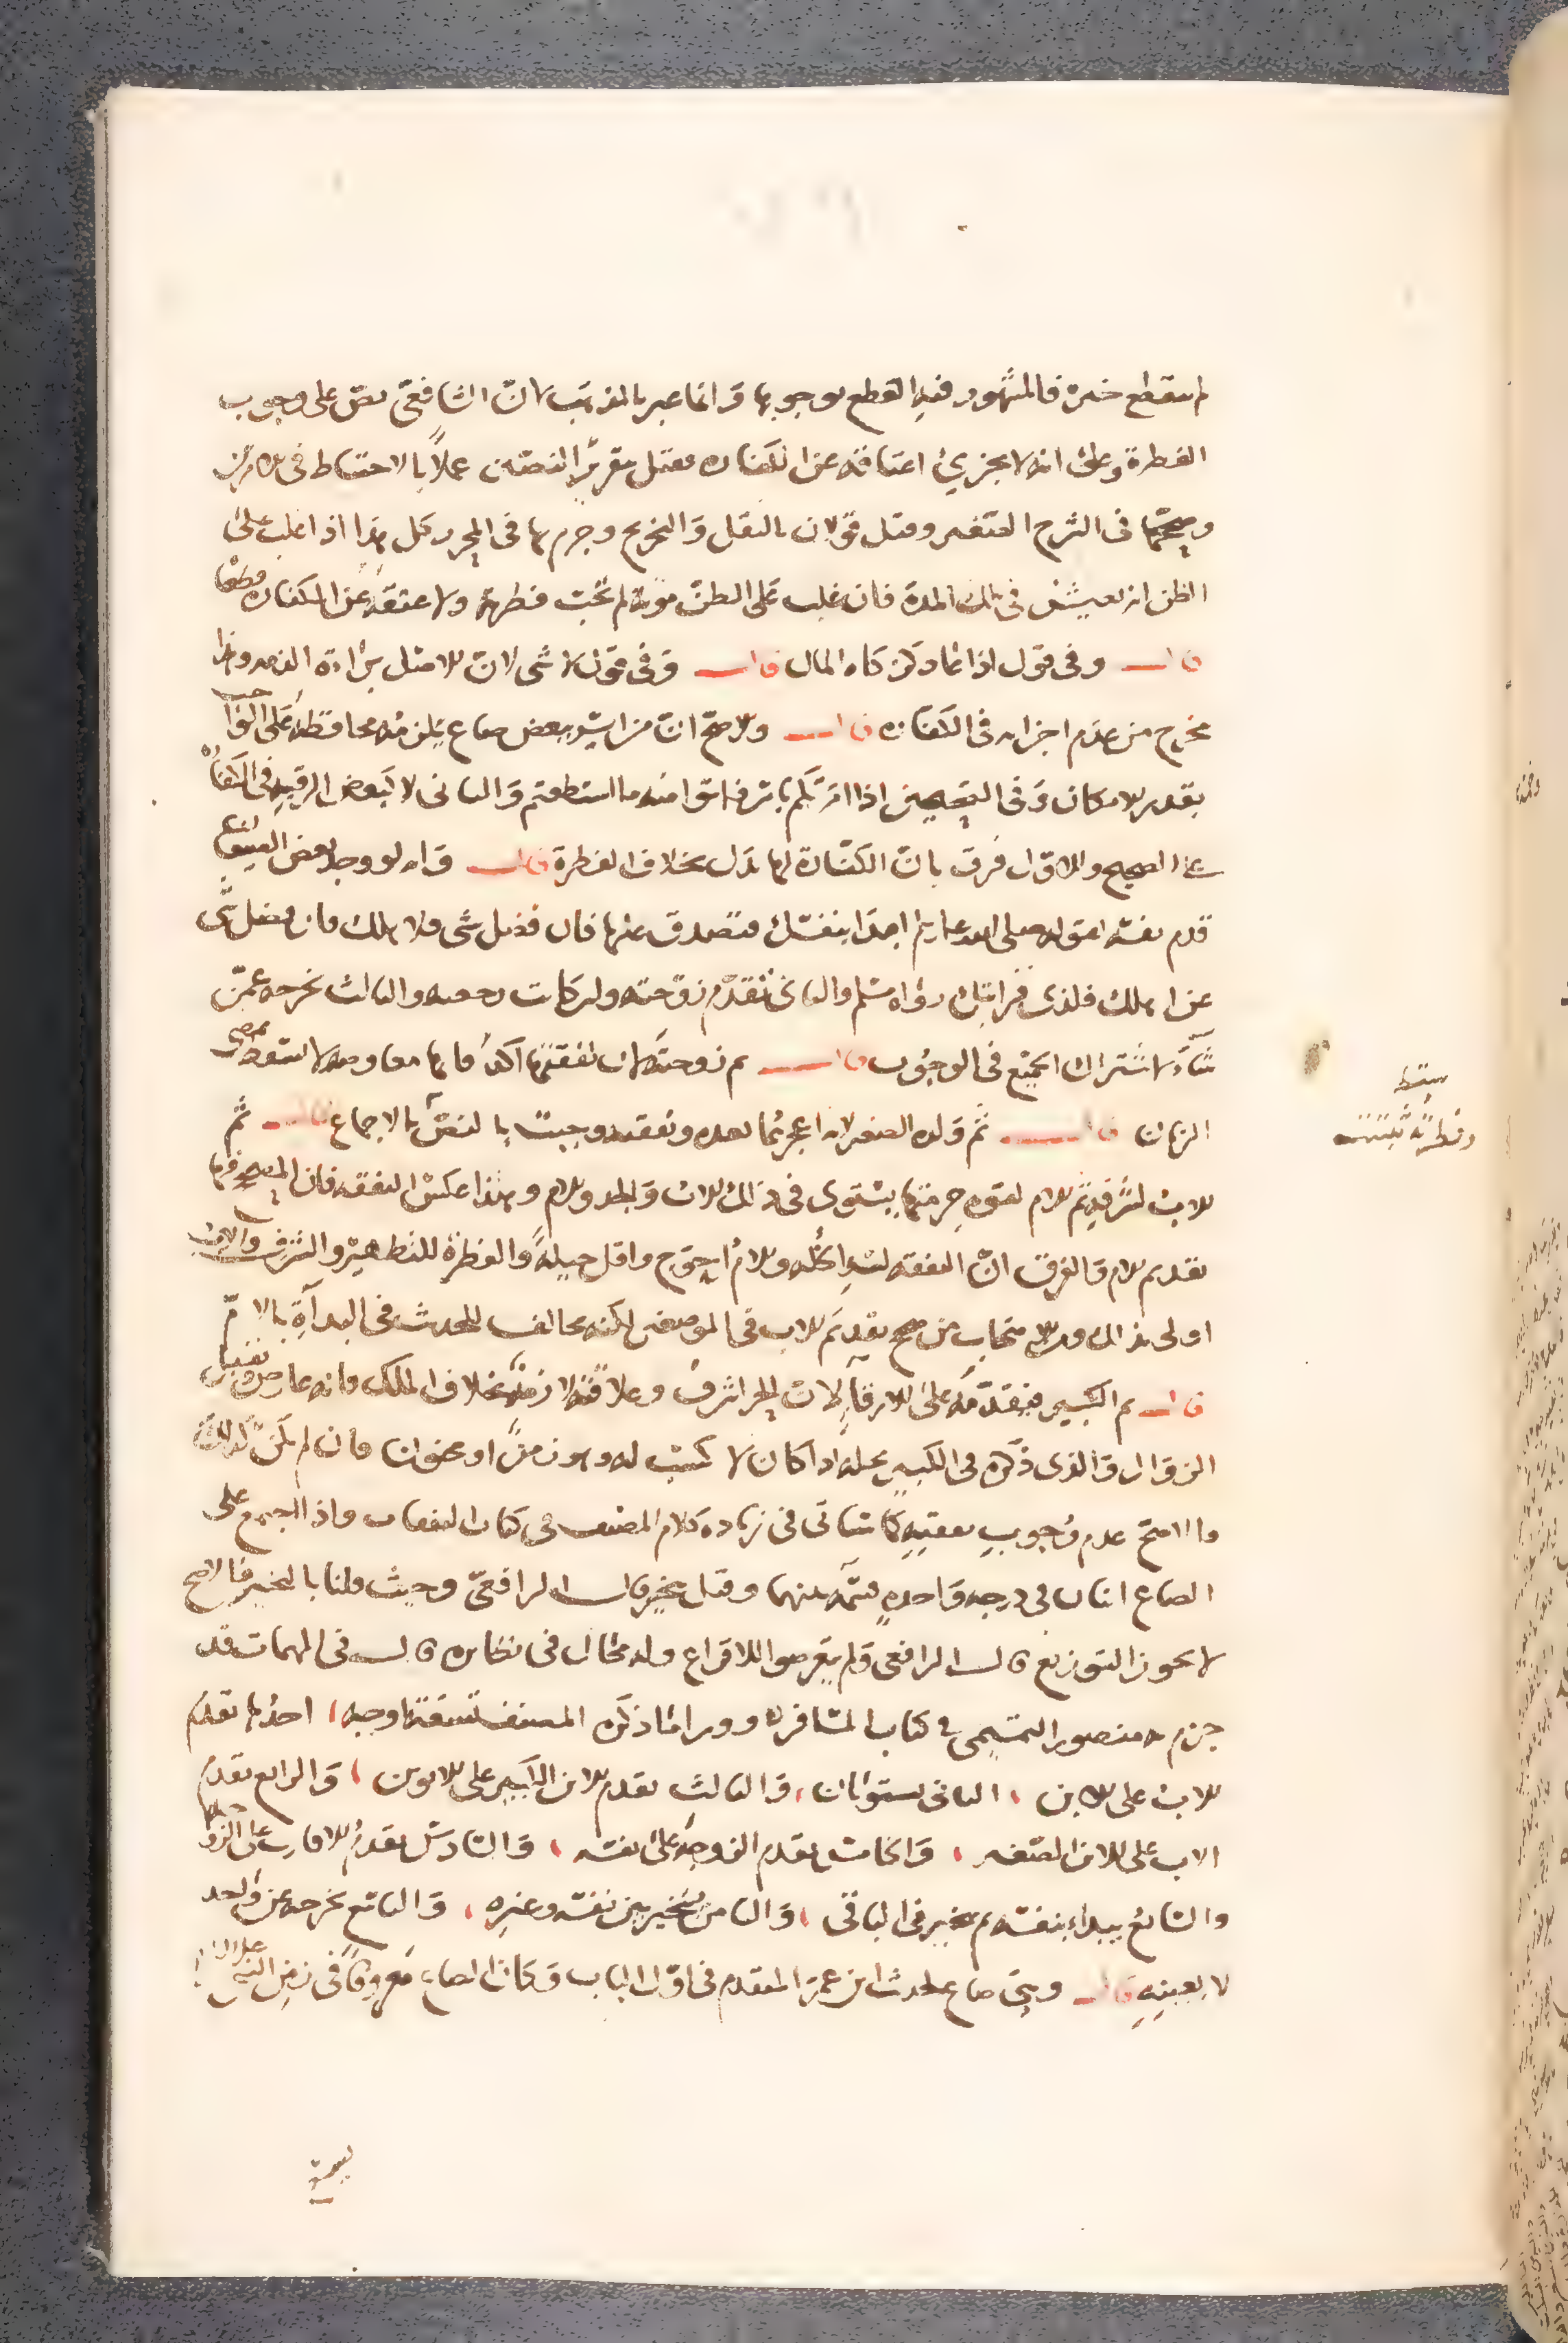 لم ينقطع خبره فالمشهور فيه القطع بوجوبها وانما عبر بالمذهب لان الشافعي نص على وجوب
الفطرة وعلى انه لا يجزي اعتاقه عن الكفاره فقيل بتقرير النصين عملا بالاحتياط في
وصححها في الشرح الصغير وقيل قولان بالنقل والتخريج وجزم بها في المحرر محل هذا اذا غلب على
الظن انه يعيش في تلك المدة فان غلب على الظن موته لم تجب فطرته ولا عتقه عن الكفاره قطعا
قال وفي قول اذا عاد كزكاه المال قال وفي قول لا شي لان الاصل براءة الذمه وهذا
مخرج من عدم اجزايه في الكفاره قال والاصح ان من ايسر ببعض صاع يلزمه محافظة على الواجب
بقدر الامكان وفي الصحيحين اذا امرتكم بامر فاتوا منه ما استطعتم والثاني لا كبعض الرقبه في الكفاره
على الصحيح والاول فرق بان الكفارة لها بدل بخلاف الفطرة قال وانه لو وجد بعض الصيعان
قدم نفسه لقوله صلى الله عليه وسلم ابدا بنفسك فتصدق عليها فان فضل شي فلاهلك فان فضل شي
عن اهلك فلذي قرابتك رواه مسلم والثاني تقدم زوجته وان كانت رجعيه والثالث يخرجه عمن
شاء لاشتراك الجميع في الوجوب قال ثم زوجته لان نفقتها اكد فانها معاوضه لا تسقط بمضي
الزمان قال ثم ولده الصغير لانه اعجز ممن بعده ونفقته وجبت بالنص بالاجماع قال ثم
الاب لشرفه ثم الام لقوه حرمتها يستوي في ذلك الاب والجد والام وهذا عكس النفقه فان الصحيح فيها
تقديم الام والفرق ان النفقه لسد الخله والام احوج واقل حيلة والفطرة للتطهير والشرف والاب
اولى بذلك من صحح تقديم الاب في الموضعين لكنه مخالف للحديث في البداة بالام
قال ثم الكبير فيقدمه على الارقاء لان الحر اشرف وعلاقته لازمة بخلاف الملك فانه عارض ويقبل
الزوال والذي ذكره في الكبير محله اذا كان لا كسب له وهو زمن او مجنون فان لم يكن كذلك
فالاصح عدم وجوب نفقته كما سياتي في زياده كلام المصنف في كتاب النفقات واذا اجتمع على
الصاع اثنان في درجه واحدة قسمه بينهما وقيل يتخير قال الرافعي وحيث قلنا بالتخيير فالاصح
لا يجوز التوزيع قال الرافعي ولم يتعرضوا للاقراع وله مجال في نظايره قال في المهمات قد
جزم به منصور التميمي في كتاب المسافر ووراء ما ذكره المصنف تسعة اوجه احدها تقدم
الاب على الابن الثاني يستويان والثالث تقدم الابن الكبير على الابوين والرابع تقدم
الاب على الابن الصغير والخامس يقدم الزوجة على نفسه والسادس يقدم الاقارب على الزوجه
والسابع يبدا بنفسه ثم يتخير في الباقي والثامن يتخير بين نفسه وغيره والتاسع يخرجه عن واحد
لا بعينه قال وهي صاع لحديث ابن عمر المتقدم في اول الباب وكان الصاع معروفا في زمن النبي
وفطرته